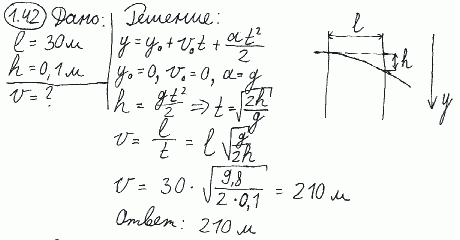 1.42 Дано:
l = 30 м
h = 0,1 м
v = ?
Решение:
y = y₀ + v₀t + at²/2
y₀ = 0, v₀ = 0, a = g
h = gt²/2 ⇒ t = √(2h/g)
v = l/t = l √(g/2h)
v = 30 · √(9,8/(2·0,1)) = 210 м
Ответ: 210 м
l
h
y